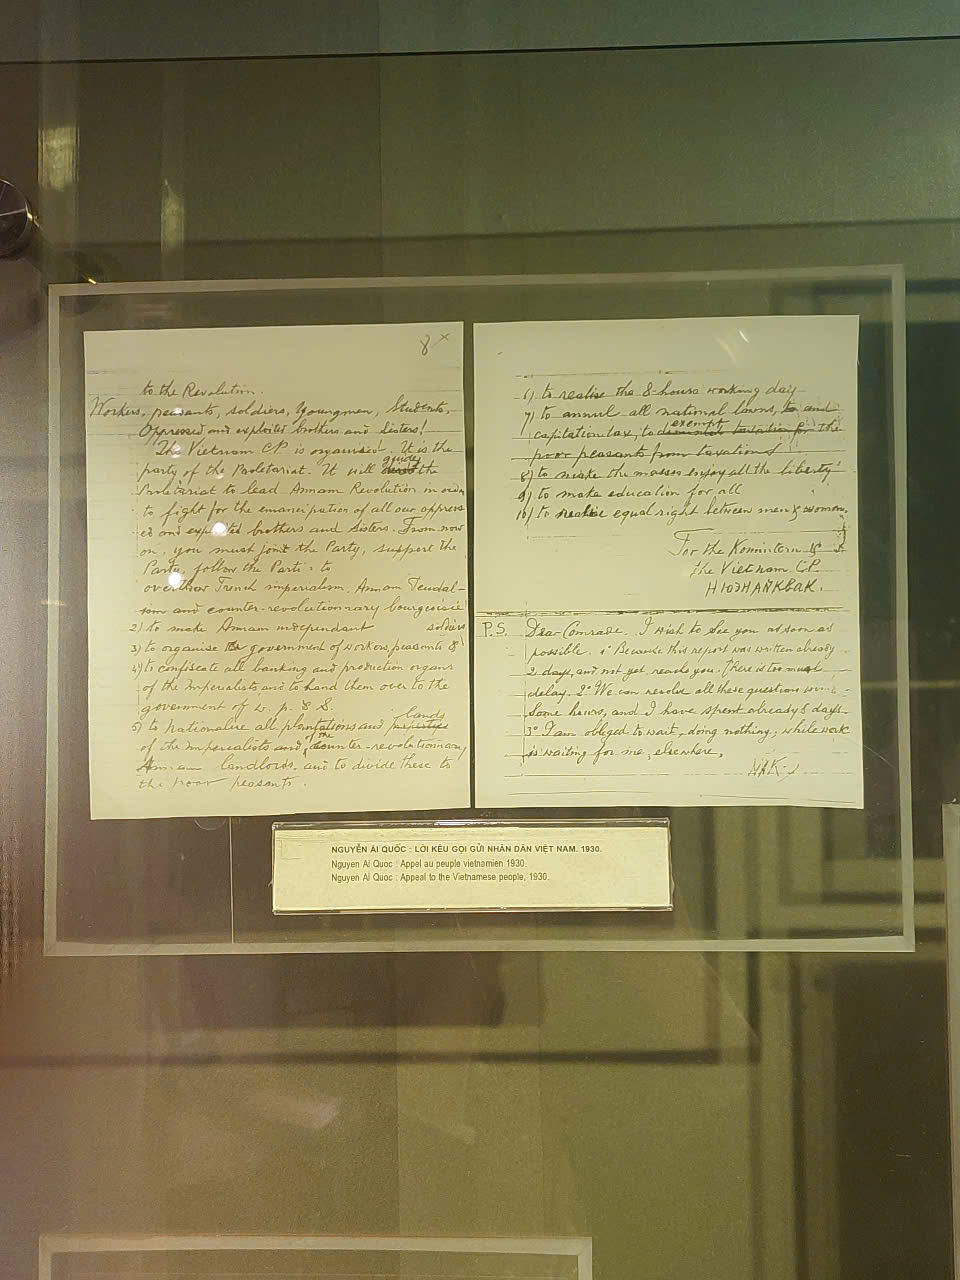 8 x
to the Revolution.
Workers, peasants, soldiers, youngmen, Students,
Oppressed and exploited brothers and Sisters!
The Vietnam CP is organised! It is the
party of the Proletariat. It will guide the
Proletariat to lead Annam Revolution in order
to fight for the emancipation of all our oppres
ed and exploited brothers and Sisters. From now
on, you must joint the Party, support the
Party, follow the Parti: to
overthrow French imperialism, Annam Feudal-
ism and counter-revolutionnary bourgeoisie
2) to make Annam independant
soldiers
3) to organise the government of workers, peasants &
4) to confiscate all banking and production organs
of the Imperialists, and to hand them over to the
government of w. p. & S.
lands
5) to nationalise all plantations and properties
of the Imperialists and of the counter-revolutionnary
Annam landlords and to divide these to
the poor peasants.
6) to realise the 8-hours working day
7) to annul all national loans, to and
exempt
capitation tax, to diminish taxation for the
poor peasants from taxations
8) to make the masses enjoy all the liberty
9) to make education for all
10) to realise equal right between men & women.
For the Komintern &
the Vietnam C.P.
P.S. Dear Comrade. I wish to see you as soon as
possible. 1° Because this report was written already
2 days, and not yet reach you. There is too much
delay. 2° We can resolve all these questions
Some hours, and I have spent already 8 days.
3° I am obliged to wait, doing nothing, while work
is waiting for me, elsewhere,
NAK
NGUYỄN ÁI QUỐC : LỜI KÊU GỌI GỬI NHÂN DÂN VIỆT NAM. 1930.
Nguyen Ai Quoc : Appel au peuple vietnamien 1930.
Nguyen Ai Quoc : Appeal to the Vietnamese people, 1930.